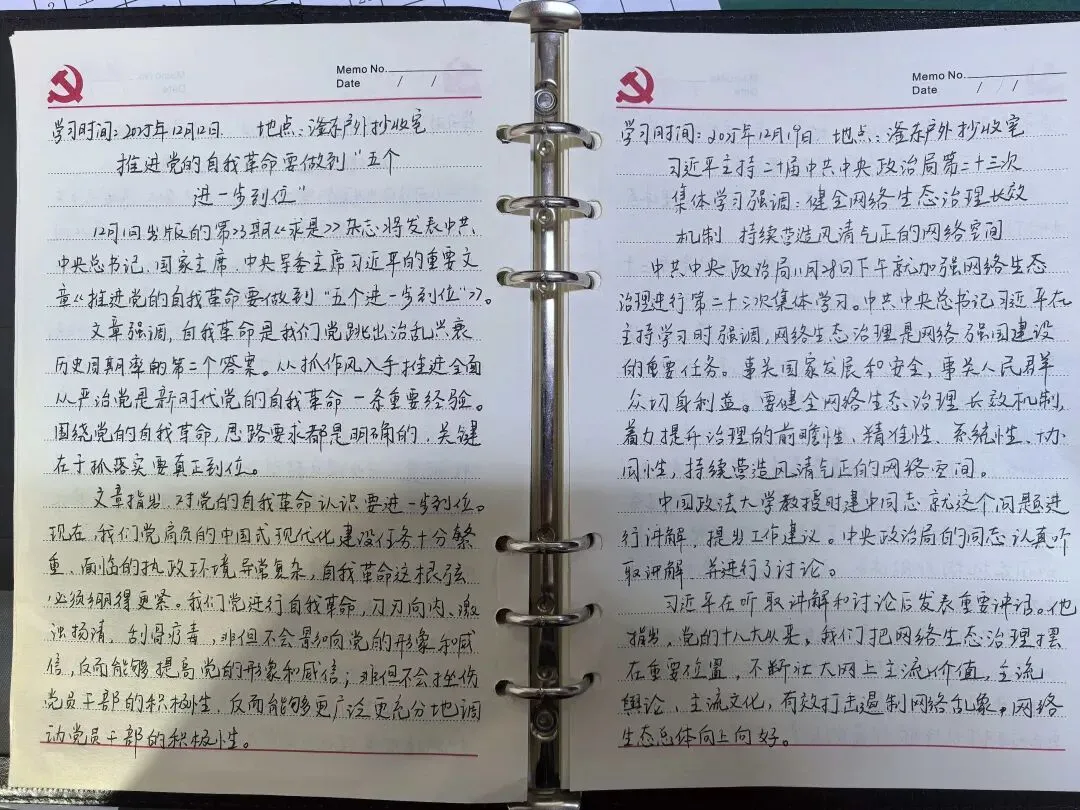 Memo No.
Date / /
学习时间：2025年12月12日 地点：滏东户外抄收室
推进党的自我革命要做到“五个
进一步到位”
12月1日出版的第23期《求是》杂志将发表中共
中央总书记、国家主席、中央军委主席习近平的重要文
章《推进党的自我革命要做到“五个进一步到位”》。
文章强调，自我革命是我们党跳出治乱兴衰
历史周期率的第二个答案。从抓作风入手推进全面
从严治党是新时代党的自我革命一条重要经验。
围绕党的自我革命，思路要求都是明确的，关键
在于抓落实要真正到位。
文章指出，对党的自我革命认识要进一步到位。
现在，我们党肩负的中国式现代化建设任务十分繁
重、面临的执政环境异常复杂，自我革命这根弦
必须绷得更紧。我们党进行自我革命，刀刃向内、激
浊扬清、刮骨疗毒，非但不会影响党的形象和威
信，反而能够提高党的形象和威信；非但不会挫伤
党员干部的积极性，反而能够更广泛更充分地调
动党员干部的积极性。
Memo No.
Date / / /
学习时间：2025年12月19日 地点：滏东户外抄收室
习近平主持二十届中共中央政治局第二十三次
集体学习强调：健全网络生态治理长效
机制 持续营造风清气正的网络空间
中共中央政治局11月28日下午就加强网络生态
治理进行第二十三次集体学习。中共中央总书记习近平在
主持学习时强调，网络生态治理是网络强国建设
的重要任务。事关国家发展和安全，事关人民群
众切身利益。要健全网络生态治理长效机制，
着力提升治理的前瞻性、精准性、系统性、协
同性，持续营造风清气正的网络空间。
中国政法大学教授时建中同志就这个问题进
行讲解，提出工作建议。中央政治局的同志认真听
取讲解 并进行了讨论。
习近平在听取讲解和讨论后发表重要讲话。他
指出，党的十八大以来，我们把网络生态治理摆
在重要位置，不断壮大网上主流价值、主流
舆论、主流文化，有效打击遏制网络乱象，网络
生态总体向上向好。